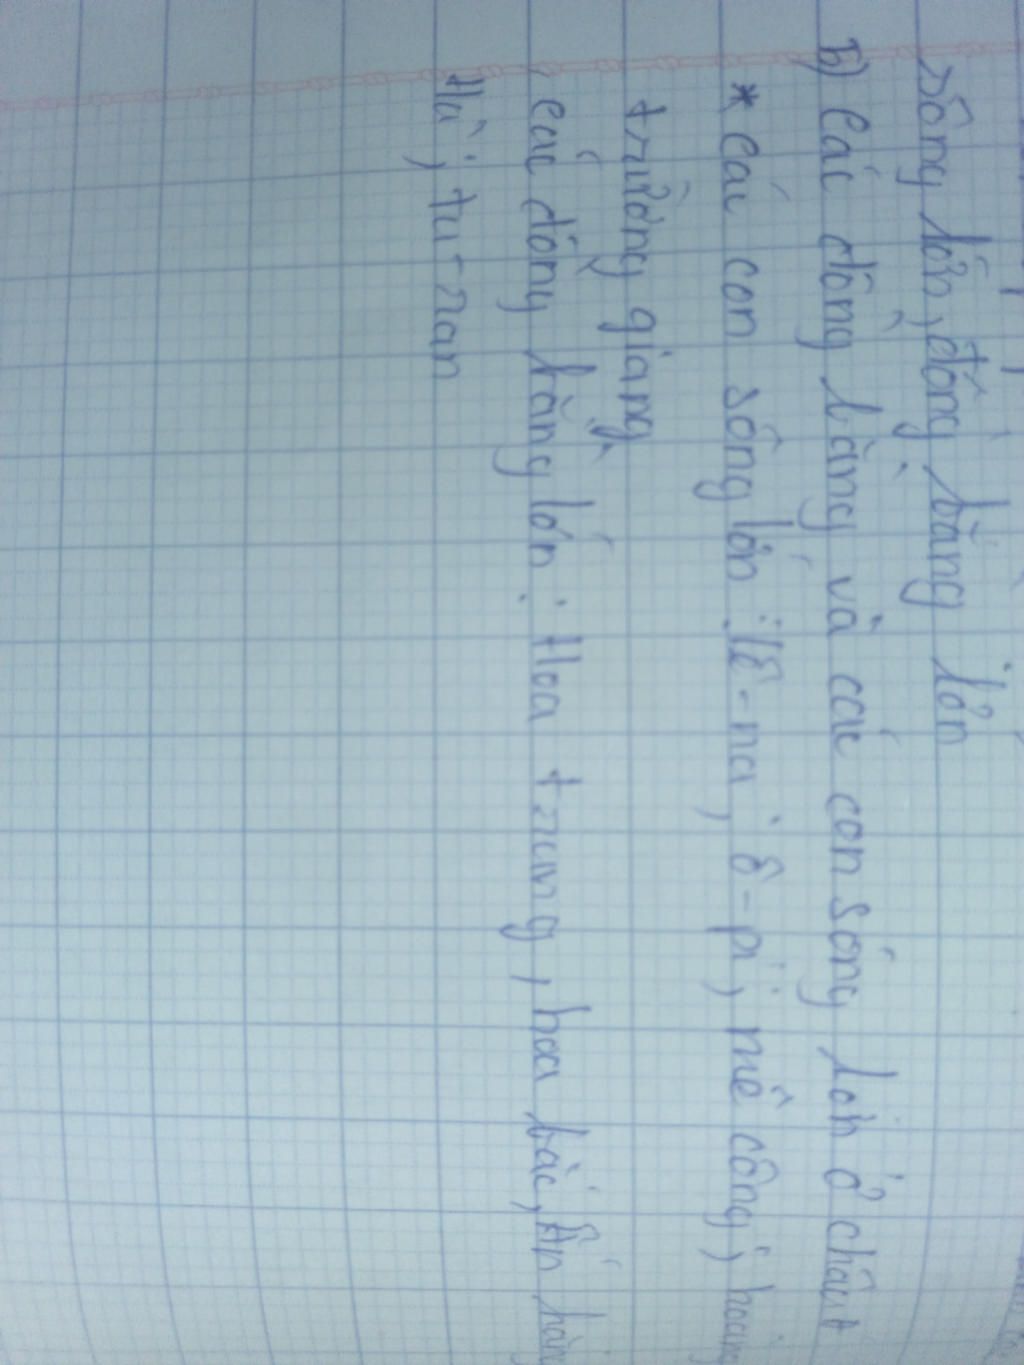 sông lớn, đồng bằng lớn
b) Các đồng bằng và các con sông lớn ở châu
* Các con sông lớn: lê-na, ô-pi, mê công, hoàng
trường giang
các đồng bằng lớn: Hoa trung, hoa bắc, Ấn hằng
Hà, tu-ran